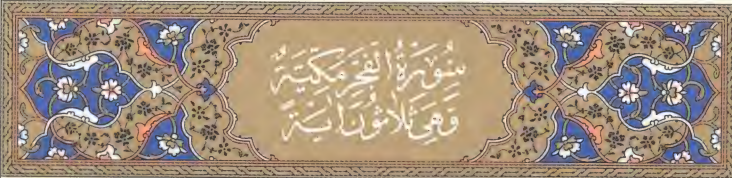 سُورَةُ الفَجْرِ مَكِّيَّةٌ
وَهِيَ ثَلَاثُونَ آيَةً